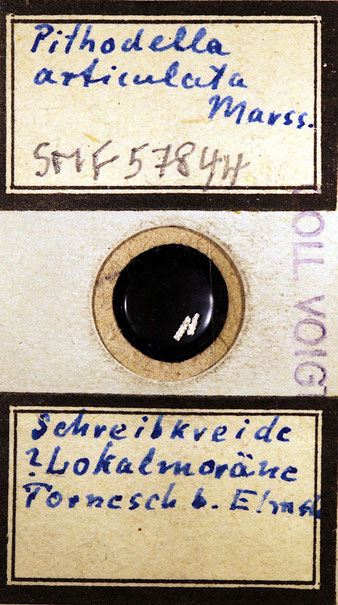 Pithodella
articulata
Marss.
SMF 5784
COLL VOIGT
Schreibkreide
? Lokalmoräne
Tornesch b. Elmsh